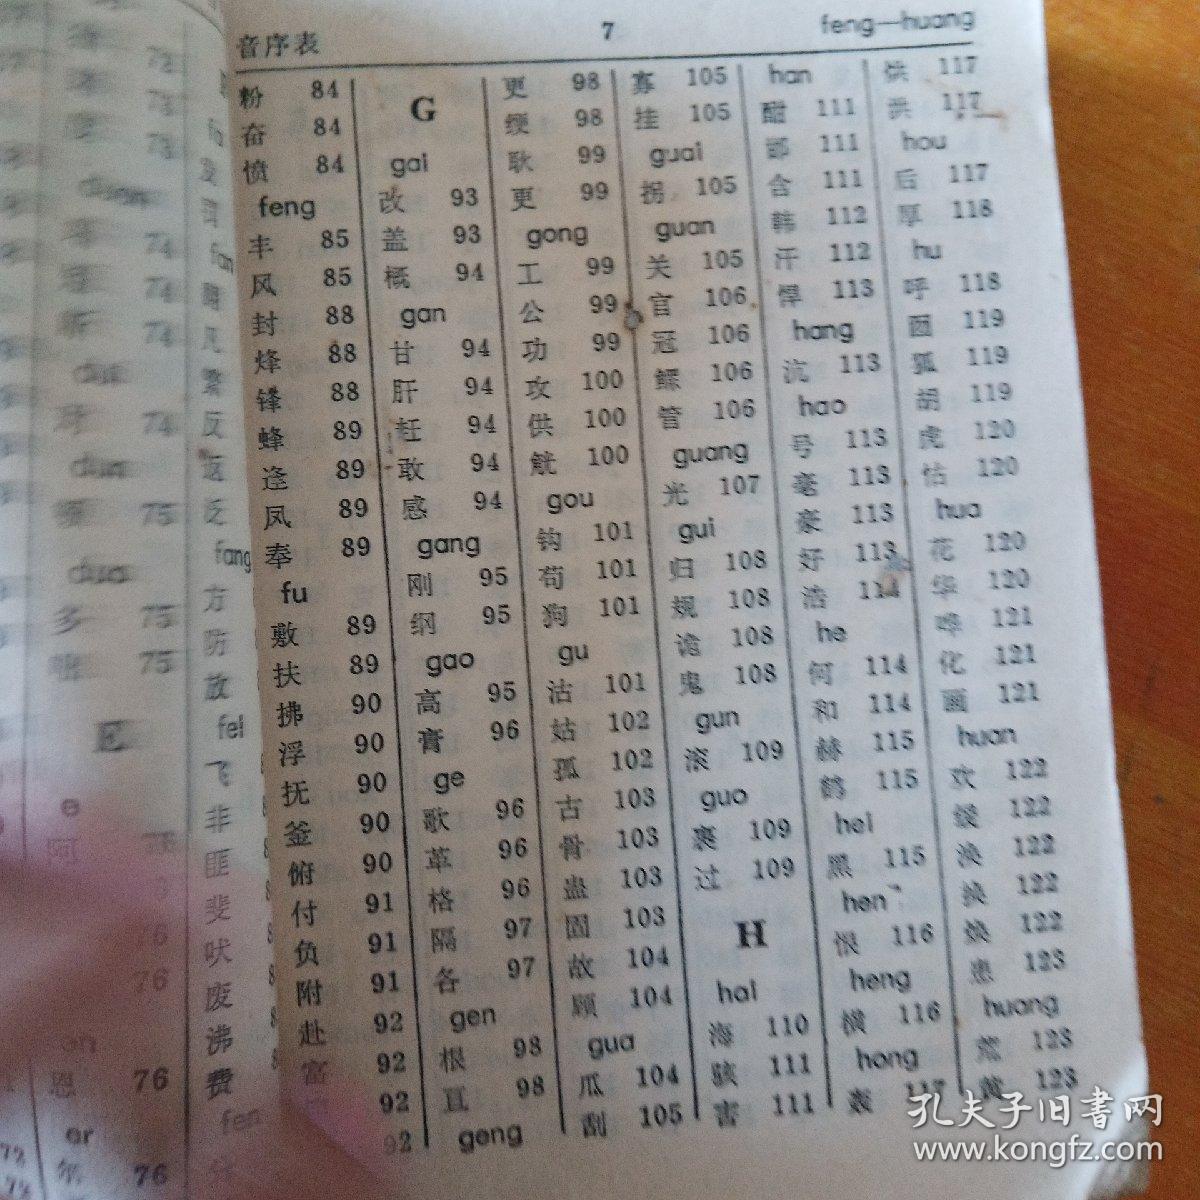 音序表 7 feng—huang
粉 84
奋 84
愤 84
feng
丰 85
风 85
封 88
烽 88
锋 88
蜂 89
逢 89
凤 89
奉 89
fu
敷 89
扶 89
拂 90
浮 90
抚 90
釜 90
俯 90
付 91
负 91
附 91
赴 92
富 92
92
92
G
gai
改 93
盖 93
概 94
gan
甘 94
肝 94
赶 94
敢 94
感 94
gang
刚 95
纲 95
gao
高 95
膏 96
ge
歌 96
革 96
格 96
隔 97
各 97
gen
根 98
亘 98
geng
更 98
绠 98
耿 99
更 99
gong
工 99
公 99
功 99
攻 100
供 100
觥 100
gou
钩 101
苟 101
狗 101
gu
沽 101
姑 102
孤 102
古 103
骨 103
蛊 103
固 103
故 104
顾 104
gua
瓜 104
刮 105
寡 105
挂 105
guai
拐 105
guan
关 105
官 106
冠 106
鳏 106
管 106
guang
光 107
gui
归 108
规 108
诡 108
鬼 108
gun
滚 109
guo
裹 109
过 109
H
hai
海 110
骇 111
害 111
han
酣 111
邯 111
含 111
韩 112
汗 112
悍 113
hang
沆 113
hao
号 113
毫 113
豪 113
好 113
浩 114
he
何 114
和 114
赫 115
鹤 115
hei
黑 115
hen
恨 116
heng
横 116
hong
轰 117
烘 117
洪 117
hou
后 117
厚 118
hu
呼 118
囫 119
狐 119
胡 119
虎 120
怙 120
hua
花 120
华 120
哗 121
化 121
画 121
huan
欢 122
缓 122
涣 122
换 122
焕 122
患 123
huang
荒 123
黄 123
E
e
阿 76
恩 76
er
尔 76
多 75
方
防
放
fei
飞
非
匪
斐
吠
废
沸
费
fen
孔夫子旧书网
www.kongfz.com